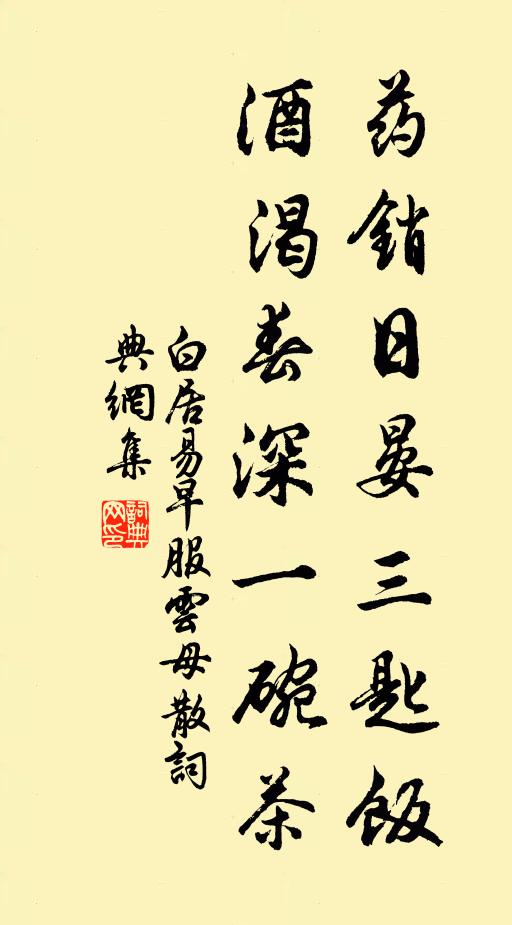 药銷日晏三匙飯
酒渴春深一碗茶
白居易早服雲母散詞
典網集
詞典
网印